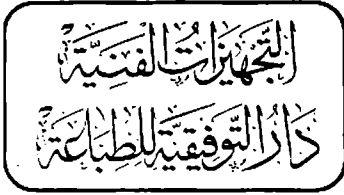 التَّجهيزاتُ الفَنيَّة
دَارُ التَّوفيقيَّة للطِّبَاعَة